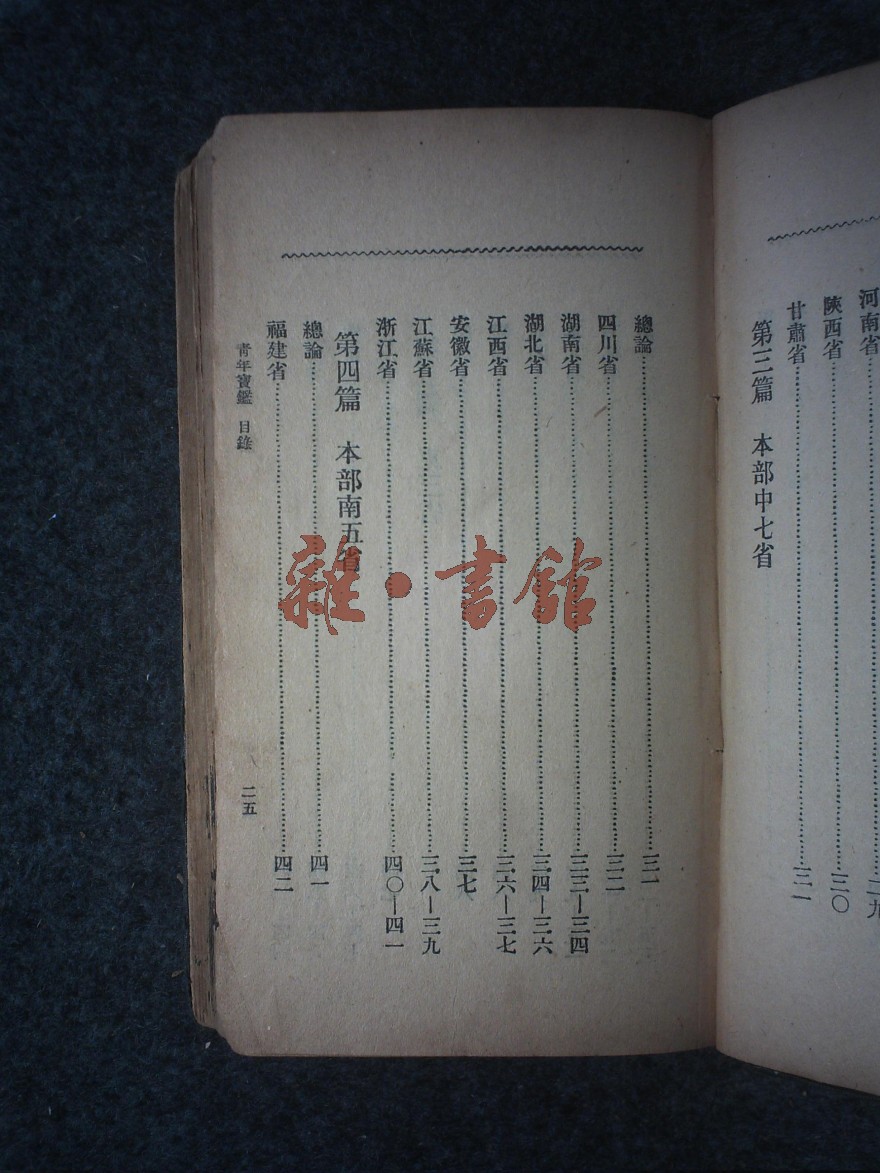 河南省……二九
陝西省……三〇
甘肅省……三一
第三篇 本部中七省
總論……三一
四川省……三二
湖南省……三三—三四
湖北省……三四—三六
江西省……三六—三七
安徽省……三七
江蘇省……三八—三九
浙江省……四〇—四一
第四篇 本部南五省
總論……四一
福建省……四二
青年寶鑑 目錄
二五
雜·書館